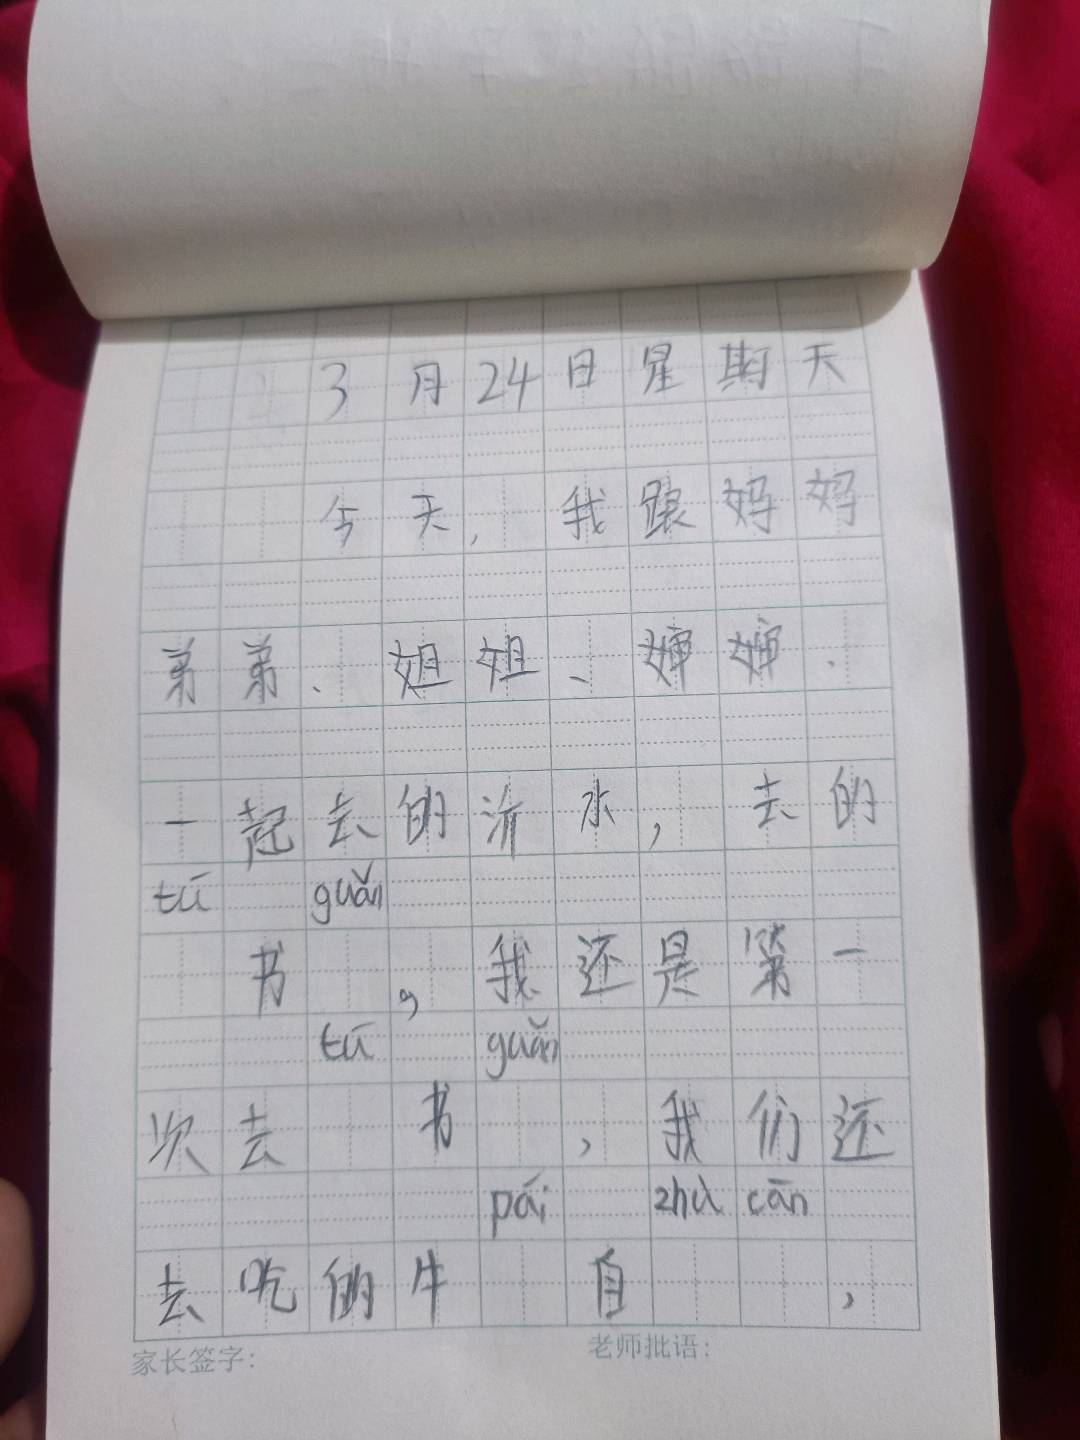 3月24日星期天
今天,我跟妈妈
弟弟、姐姐、婶婶.
一起去的沂水,去的
tú guǎn
书,我还是第一
tú guǎn
次去书,我们还
pái zhù cān
去吃的牛自,
家长签字: 老师批语: